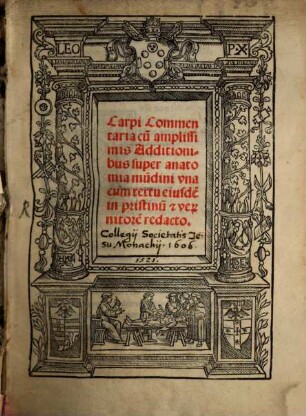 LEO P.X.
Carpi Commen
taria cū amplissi
mis Additioni
bus super anato
mia mūdini vna
cum textu eiusdē
in pristinū ⁊ veꝝ
nitorē redacto.
Collegij Societatis Je-
su Monachij. 1606.
1521.